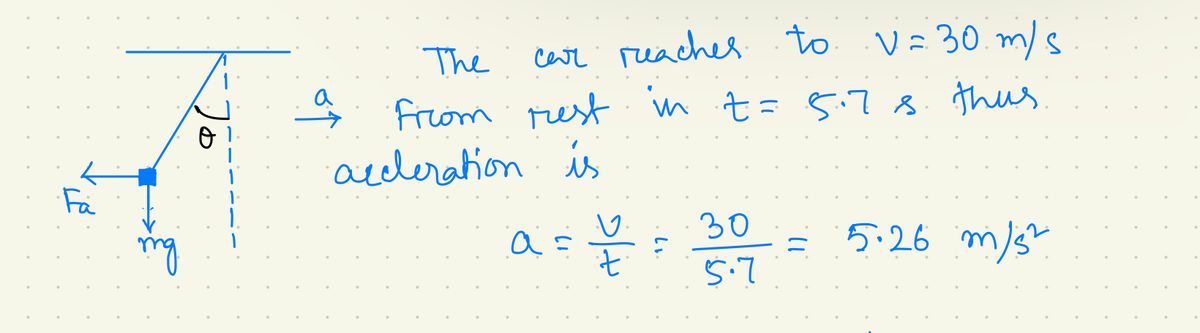 The car reaches to v = 30 m/s
a → From rest in t = 5.7 s thus
θ
accleration is
Fa
mg
a = v/t = 30/5.7 = 5.26 m/s²